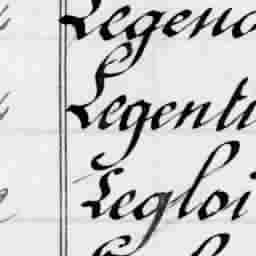 Legend
Legenti
Legloi